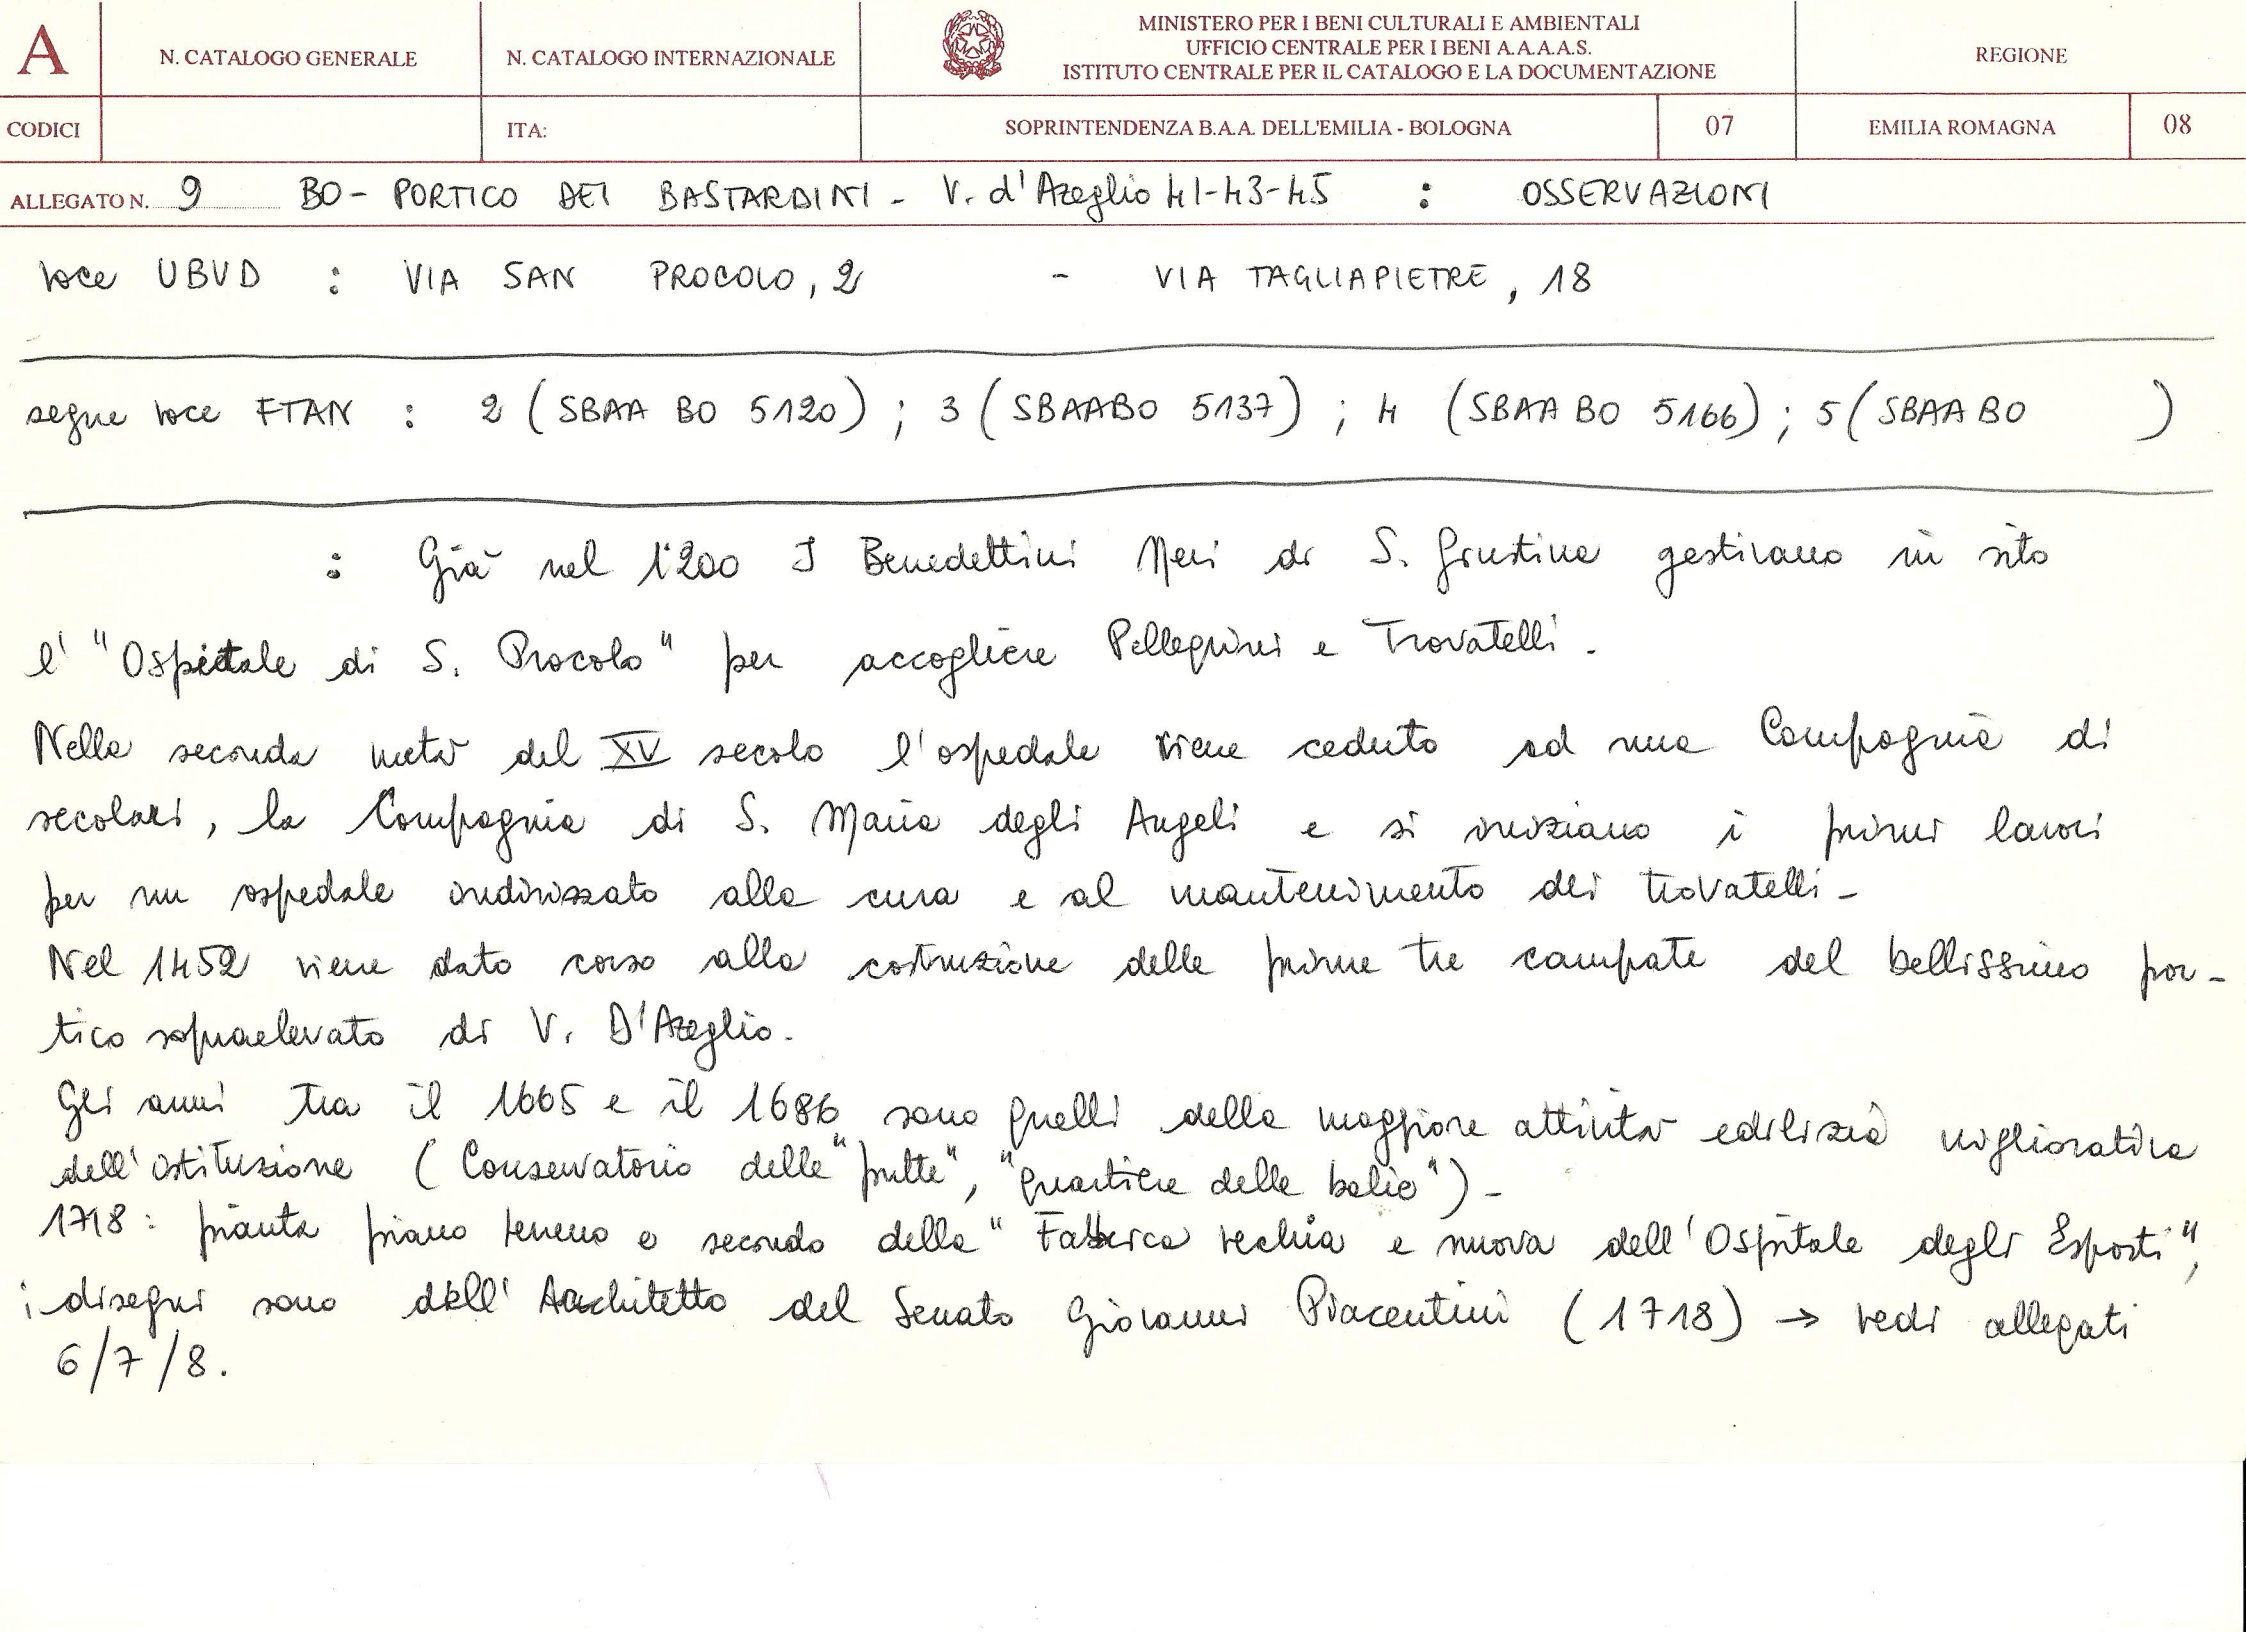 A
N. CATALOGO GENERALE
N. CATALOGO INTERNAZIONALE
MINISTERO PER I BENI CULTURALI E AMBIENTALI
UFFICIO CENTRALE PER I BENI A.A.A.A.S.
ISTITUTO CENTRALE PER IL CATALOGO E LA DOCUMENTAZIONE
REGIONE
CODICI
ITA:
SOPRINTENDENZA B.A.A. DELL'EMILIA - BOLOGNA
07
EMILIA ROMAGNA
08
ALLEGATO N. 9 BO - PORTICO DEI BASTARDINI - V. d'Azeglio 41-43-45 : OSSERVAZIONI
voce UBVD : VIA SAN PROCOLO, 2 - VIA TAGLIAPIETRE, 18
segue voce FTAN : 2 (SBAA BO 5120) ; 3 (SBAABO 5137) ; 4 (SBAA BO 5166) ; 5 (SBAA BO )
: Già nel 1200 I Benedettini Neri di S. Giustina gestivano in sito
l' "Ospitale di S. Procolo" per accogliere Pellegrini e Trovatelli.
Nella seconda metà del XV secolo l'ospedale viene ceduto ad una Compagnia di
secolari, la Compagnia di S. Maria degli Angeli e si iniziano i primi lavori
per un ospedale indirizzato alla cura e al mantenimento dei trovatelli -
Nel 1452 viene dato corso alla costruzione delle prime tre campate del bellissimo por-
tico sopraelevato di V. D'Azeglio.
Gli anni tra il 1665 e il 1686 sono quelli della maggiore attività edilizia migliorativa
dell'istituzione (Conservatorio delle "putte", "quartiere delle balie") -
1718: pianta piano terreno e secondo della "Fabbrica vechia e nuova dell'Ospitale degli Esposti",
i disegni sono dell'Architetto del Senato Giovanni Piacentini (1718) → vedi allegati
6/7/8.